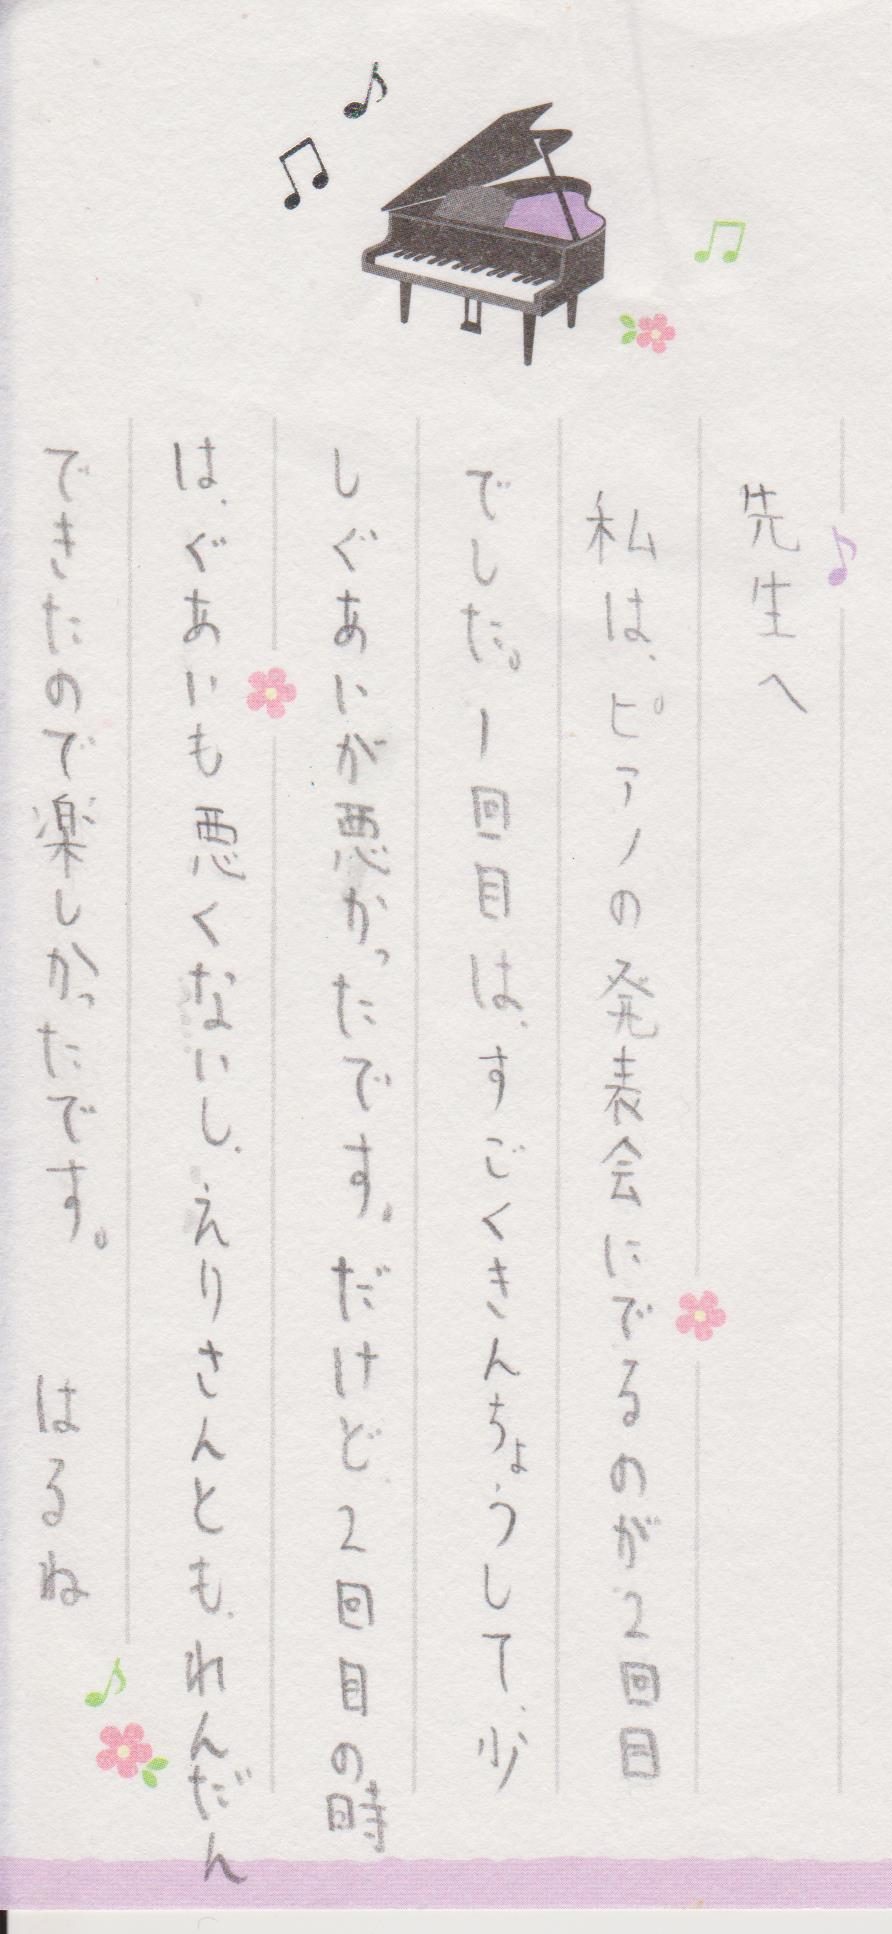 先生へ
私は、ピアノの発表会にでるのが2回目
でした。1回目は、すごくきんちょうして、少
しぐあいが悪かったです。だけど、2回目の時
は、ぐあいも悪くないし、えりさんとも、れんだん
できたので楽しかったです。 はるね